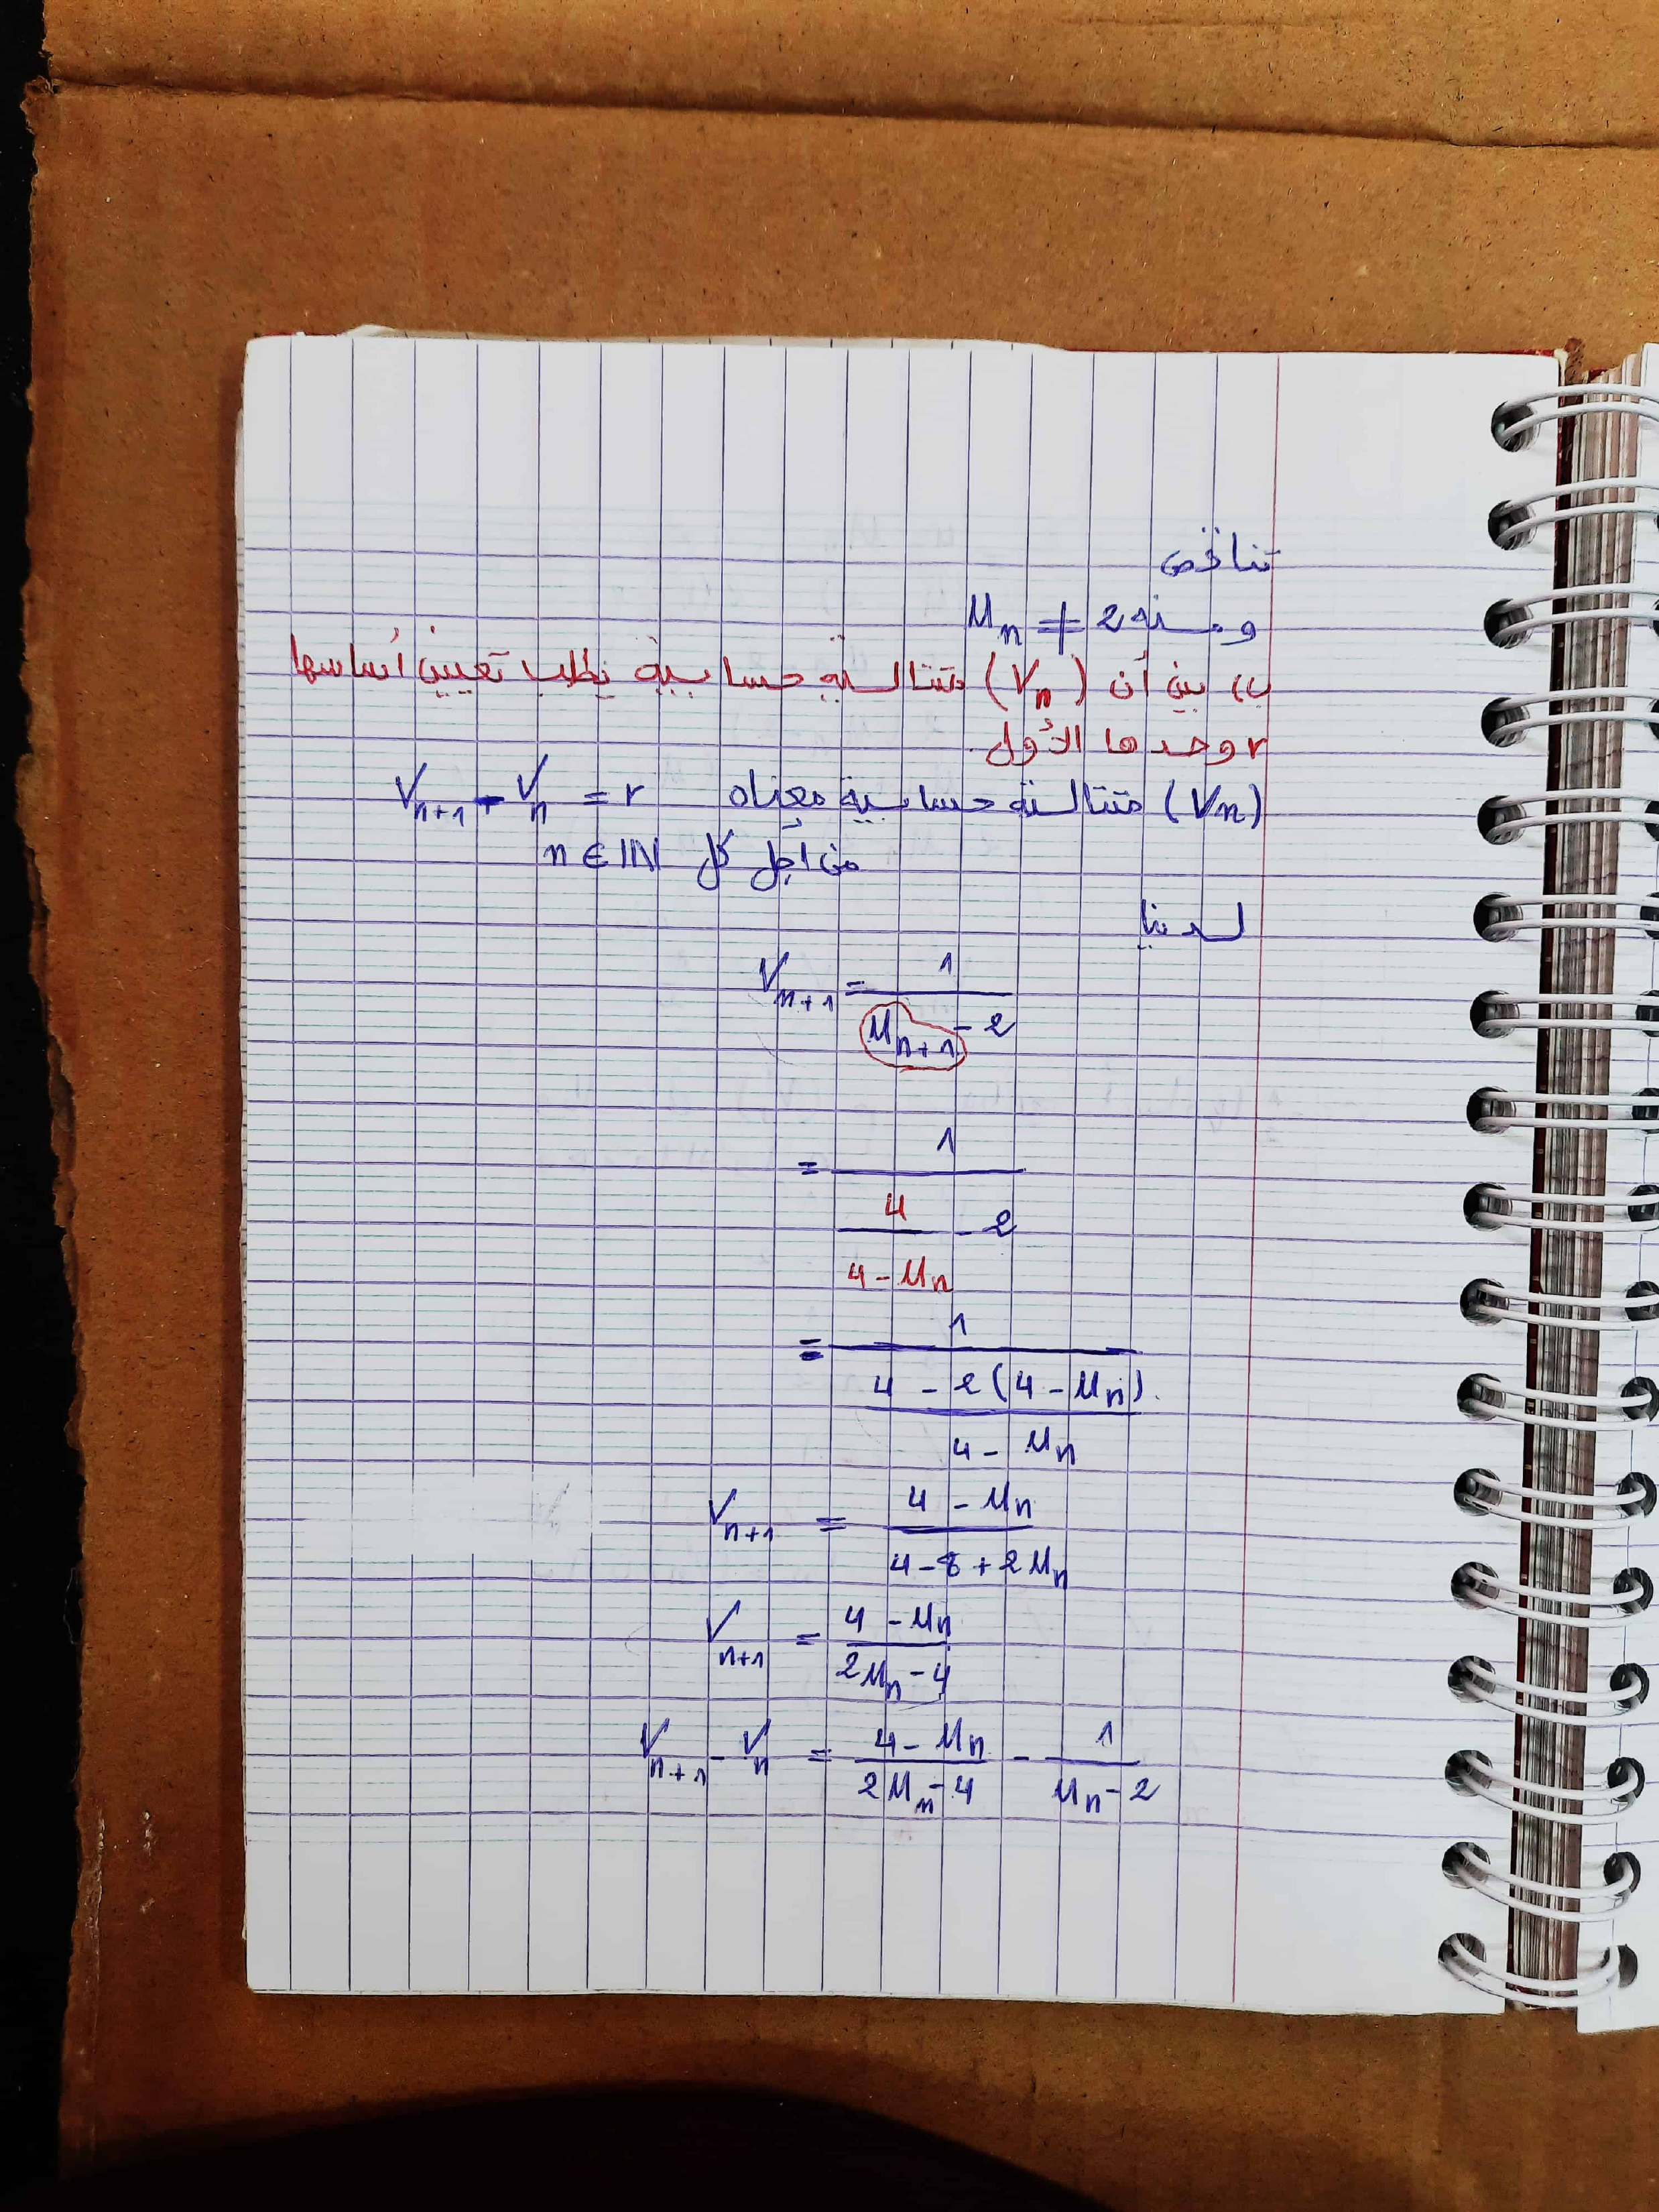 تناقض
ومنه U_n ≠ 2
ب) بين أن (V_n) متتالية حسابية يطلب تعيين أساسها
r وحدها الأول
(V_n) متتالية حسابية معناه V_{n+1} - V_n = r
من أجل كل n ∈ ℕ
لدينا
V_{n+1} = 1 / (U_{n+1} - 2)
= 1 / (4/(4 - U_n) - 2)
= 1 / ((4 - 2(4 - U_n)) / (4 - U_n))
V_{n+1} = (4 - U_n) / (4 - 8 + 2U_n)
V_{n+1} = (4 - U_n) / (2U_n - 4)
V_{n+1} - V_n = (4 - U_n) / (2U_n - 4) - 1 / (U_n - 2)